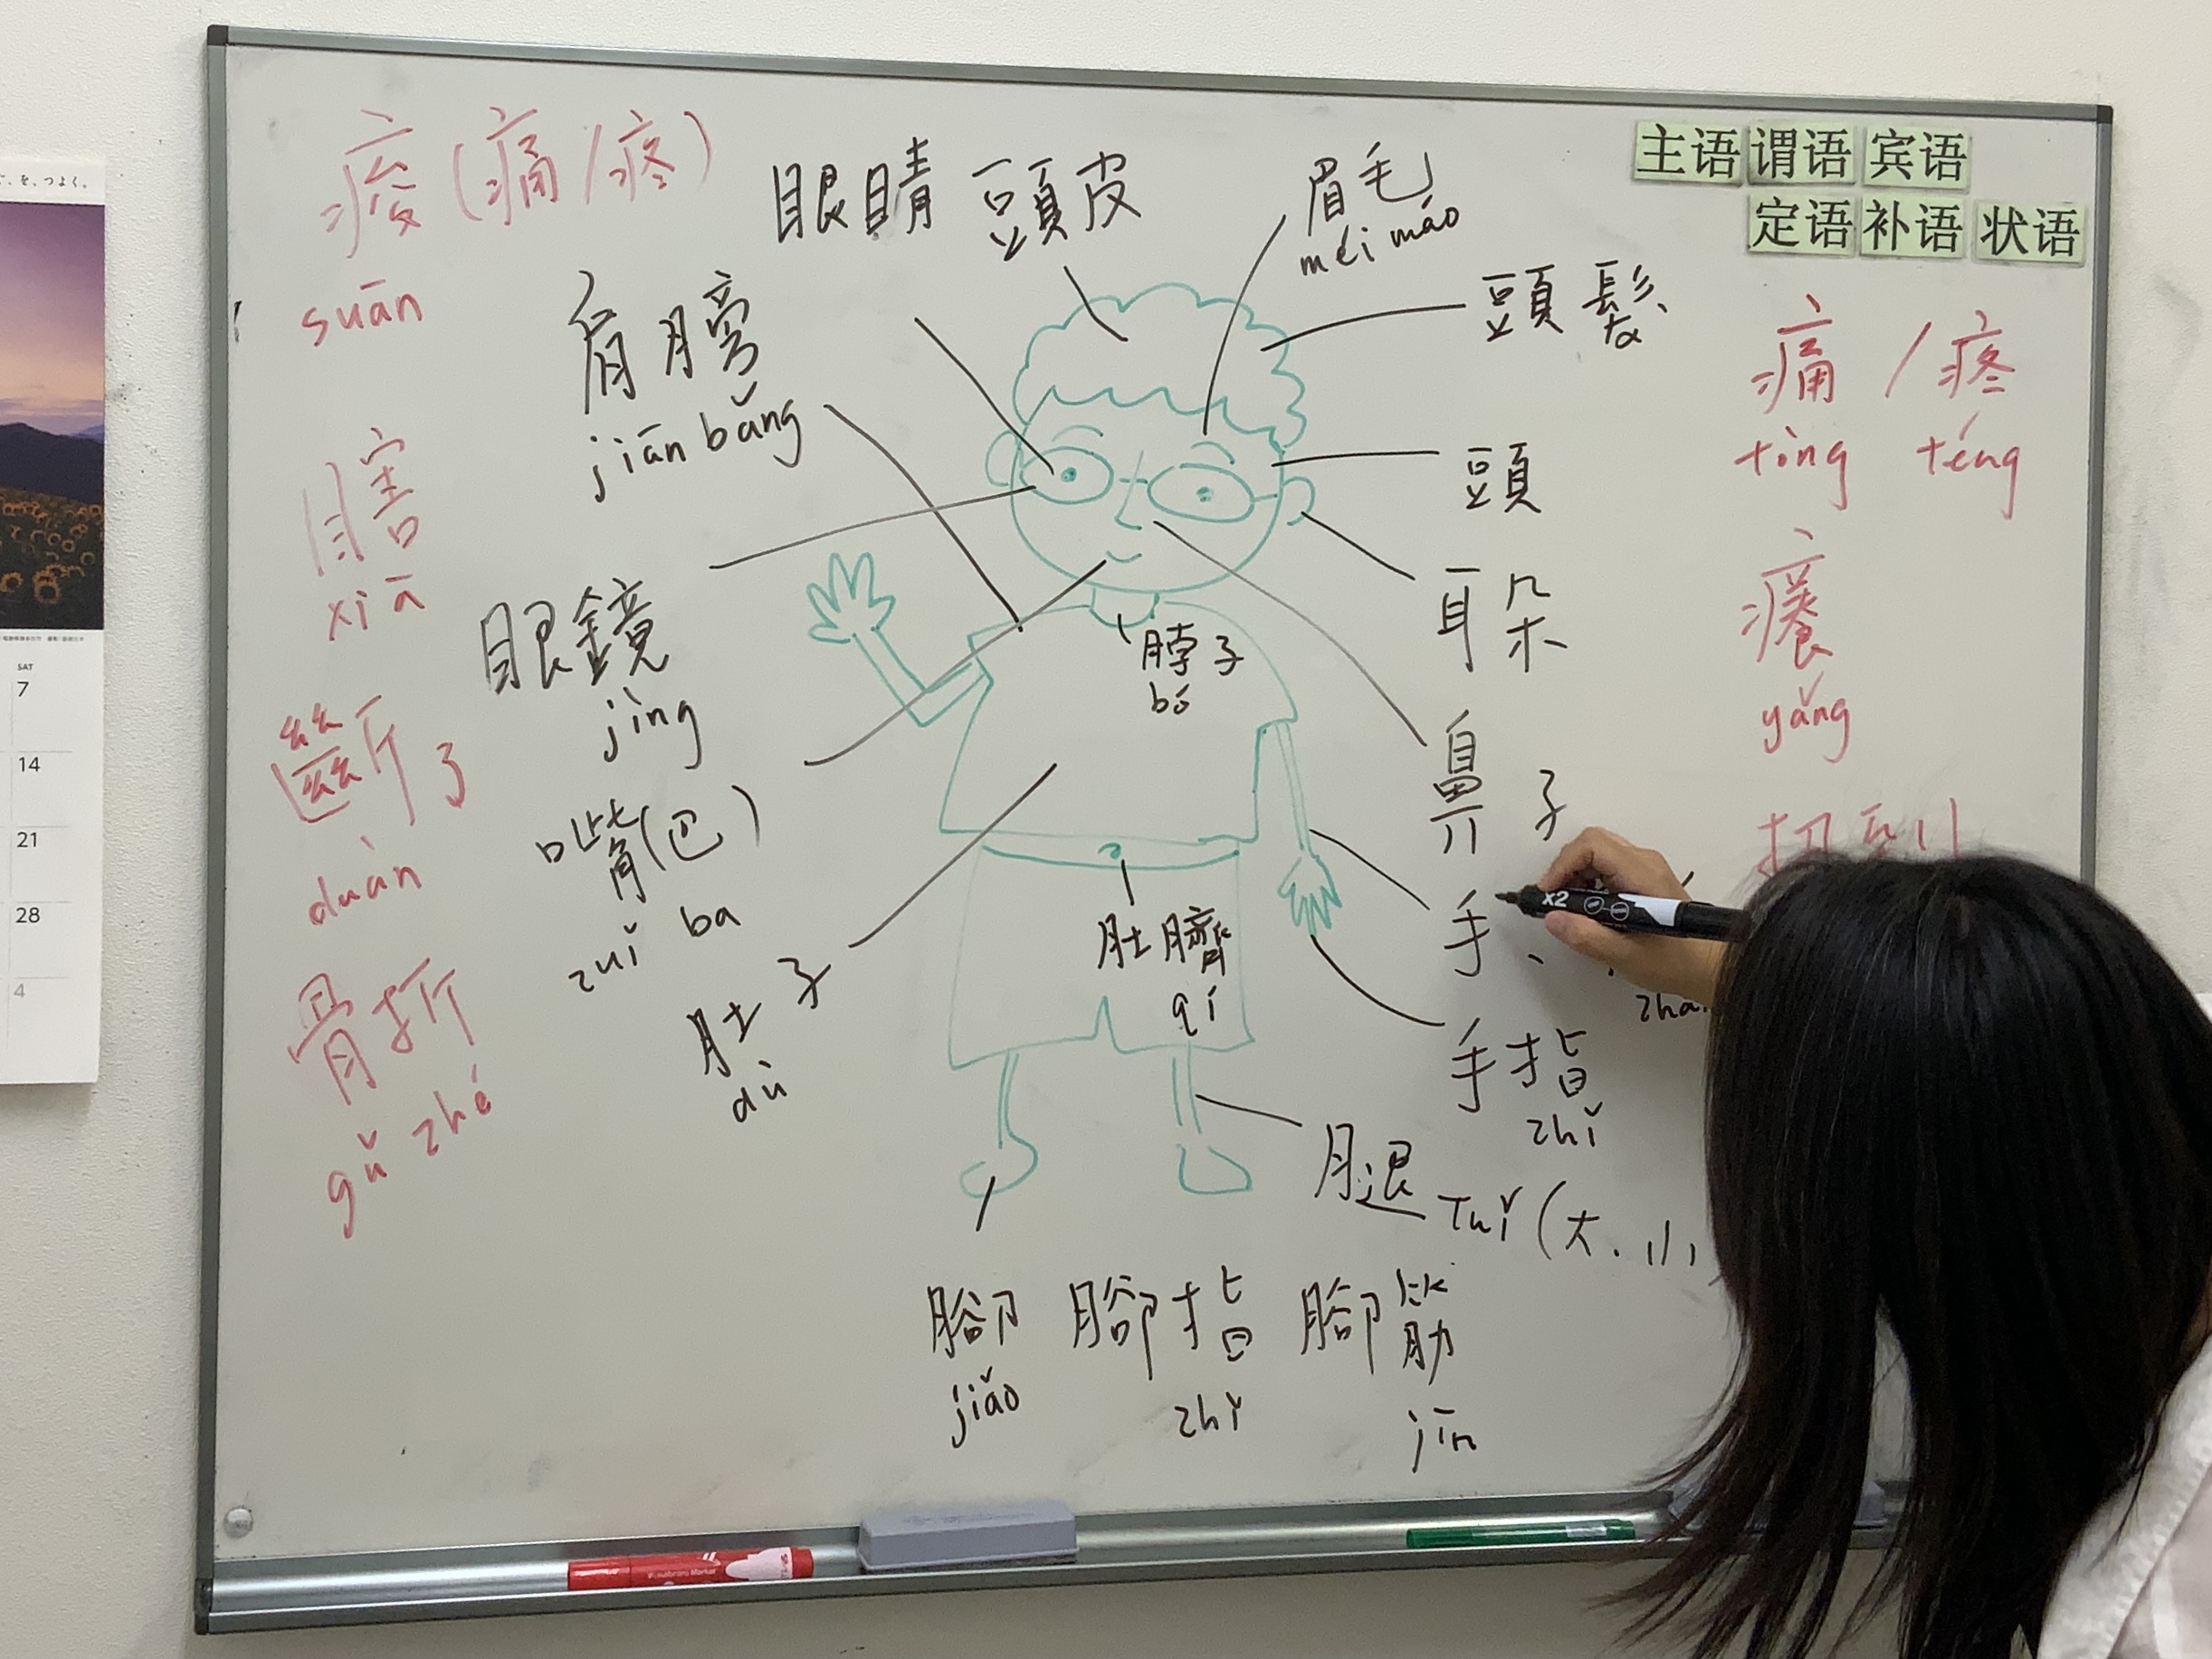 痠(痛/疼)
suān
瞎
xiā
斷了
duàn
骨折
gǔ zhé
眼睛 頭皮
眉毛
méi máo
肩膀
jiān bǎng
眼鏡
jìng
嘴(巴)
zuǐ ba
肚子
dù
頭髮
頭
耳朵
脖子
bó
鼻子
手、
手指
zhǐ
肚臍
qí
腿 Tuǐ (大.小
腳 腳指 腳筋
jiǎo zhǐ jīn
主语 谓语 宾语
定语 补语 状语
痛 / 疼
tòng téng
癢
yǎng
扭到
x2
を、つよく。
SAT
7
14
21
28
4